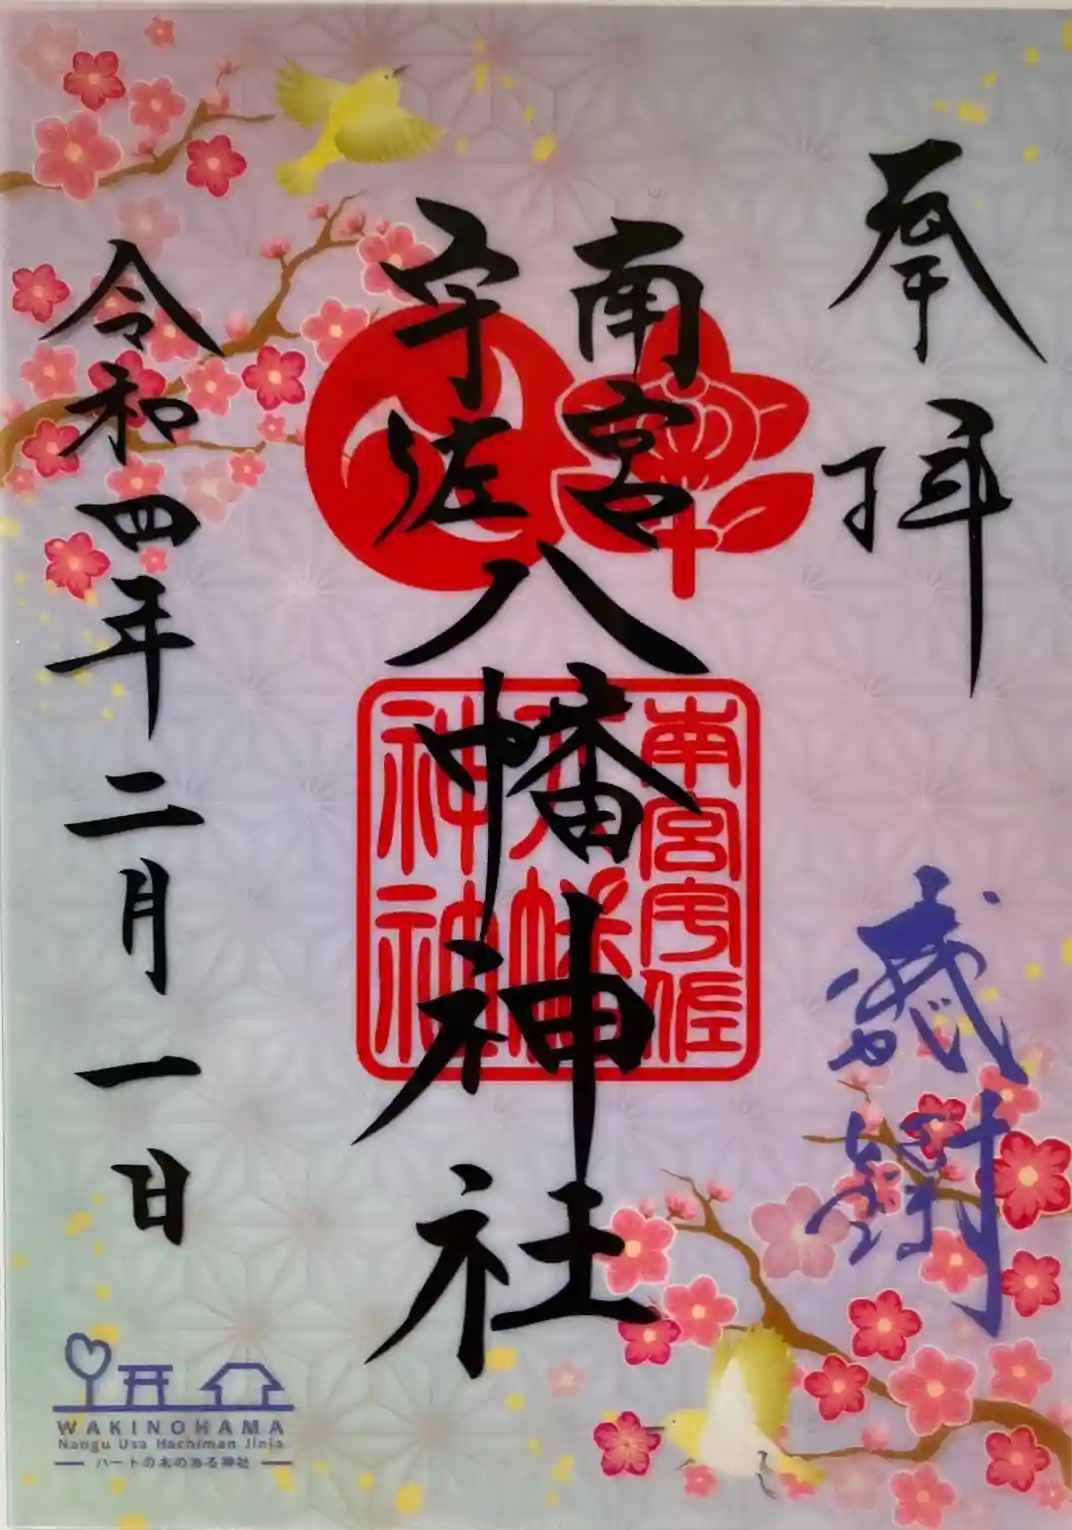 奉拝
感謝
南宮
宇佐
八幡神社
南宮宇佐
八幡
神社
令和四年二月一日
WAKINOHAMA
Nangu Usa Hachiman Jinja
ハートの木のある神社